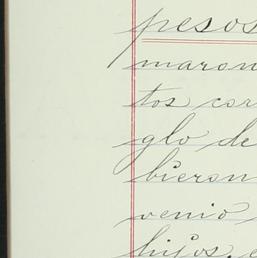 pesos
maron
tos cor
glo de
bieron
venio
hijos, e